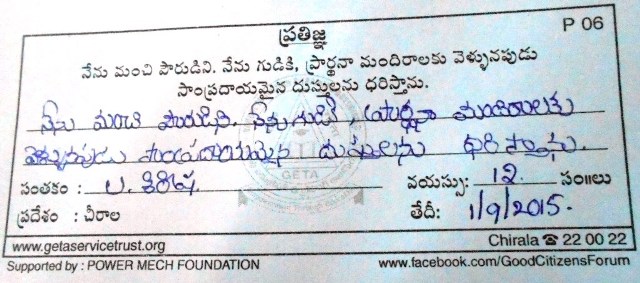 P 06
ప్రతిజ్ఞ
నేను మంచి పౌరుడిని. నేను గుడికి, ప్రార్థనా మందిరాలకు వెళ్ళునపుడు
సాంప్రదాయమైన దుస్తులను ధరిస్తాను.
నేను మంచి పౌరుడిని. నేను గుడికి, ప్రార్థనా మందిరాలకు
వెళ్ళునపుడు సాంప్రదాయమైన దుస్తులను ధరిస్తాను.
GETA
సంతకం : ల. శిరిష వయస్సు: 12 సం॥లు
ప్రదేశం : చీరాల తేదీ: 1/9/2015.
www.getaservicetrust.org Chirala ☎ 22 00 22
Supported by : POWER MECH FOUNDATION www.facebook.com/GoodCitizensForum